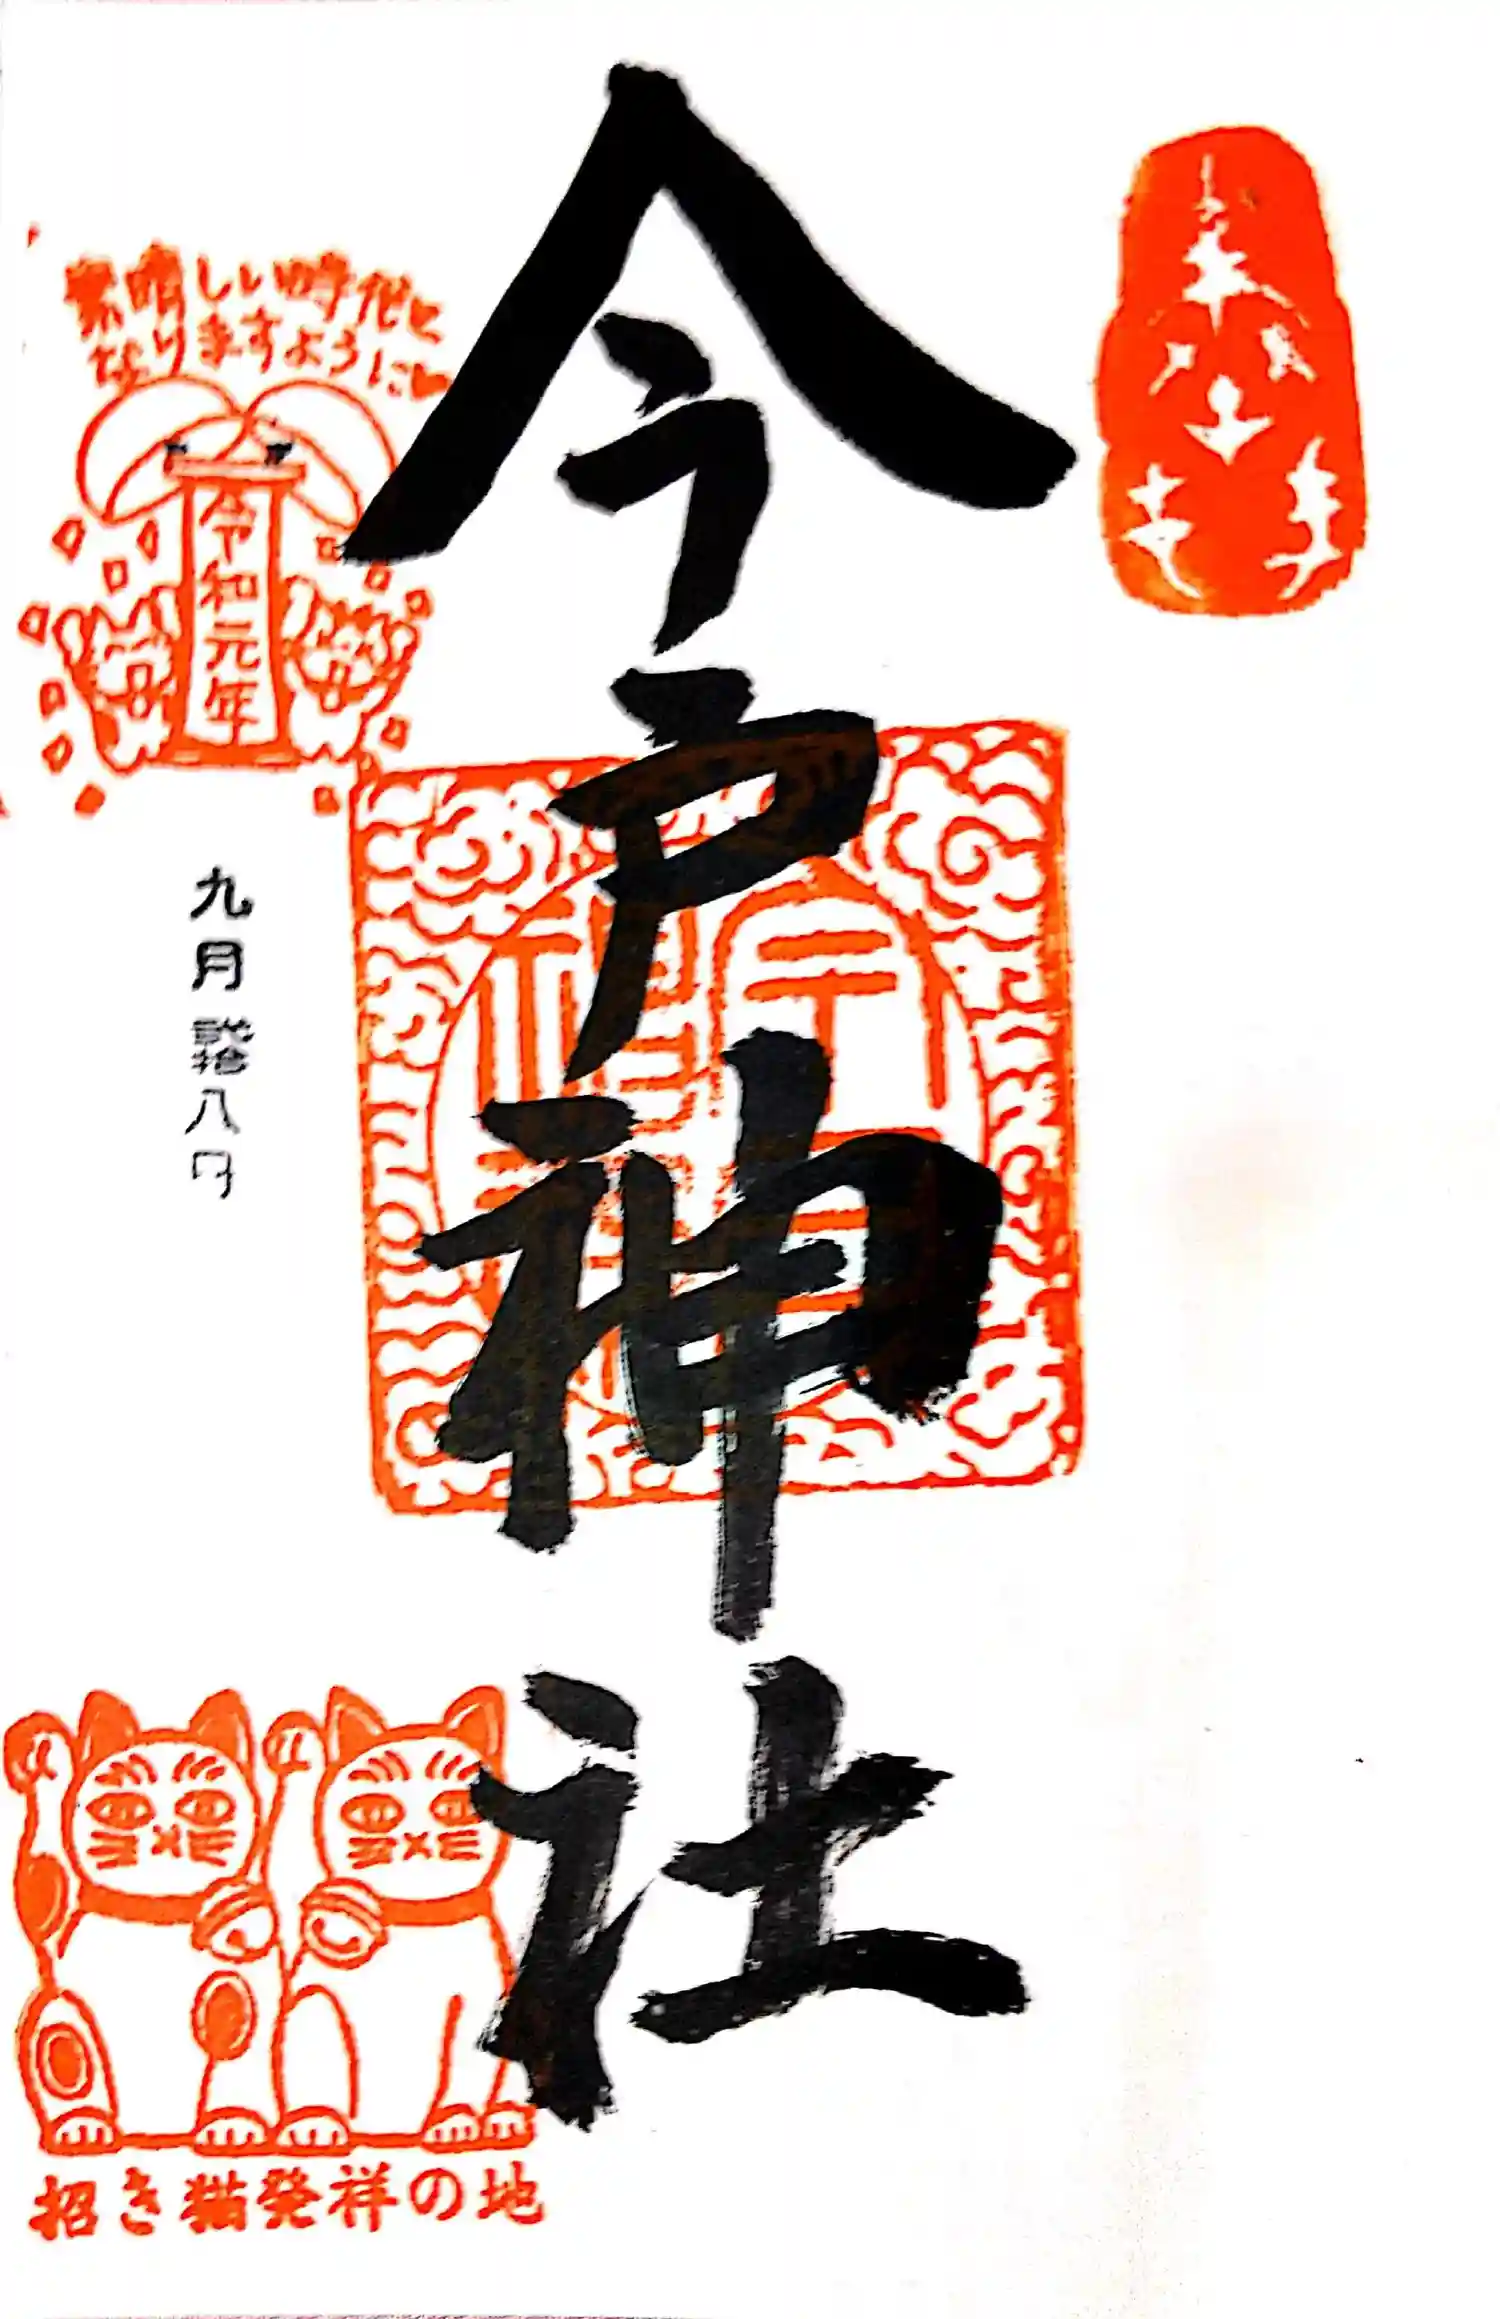 今戸神社
素晴しい時代に
なりますように♥
令和元年
九月弐拾八日
招き猫発祥の地